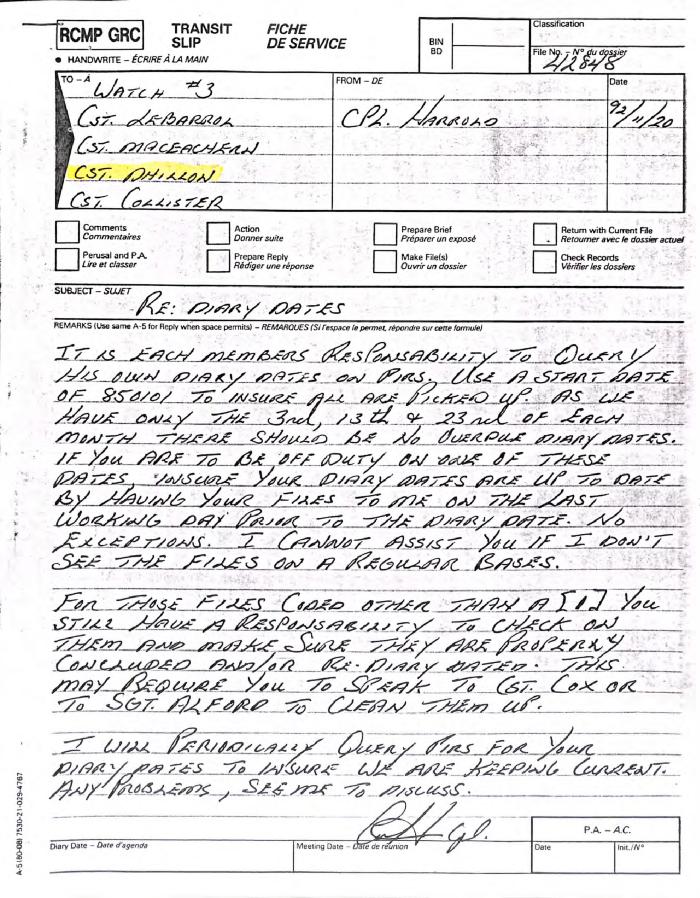 RCMP GRC
TRANSIT SLIP
FICHE DE SERVICE
• HANDWRITE – ÉCRIRE À LA MAIN
BIN
BD
Classification
File No. – N° du dossier
42848
TO – A
WATCH #3
CST. LEBARROL
CST. MACEACHERN
CST. DHILLON
CST. COLLISTER
FROM – DE
CPL. HARROLD
Date
92/11/20
Comments
Commentaires
Action
Donner suite
Prepare Brief
Préparer un exposé
Return with Current File
Retourner avec le dossier actuel
Perusal and P.A.
Lire et classer
Prepare Reply
Rédiger une réponse
Make File(s)
Ouvrir un dossier
Check Records
Vérifier les dossiers
SUBJECT – SUJET
RE: DIARY DATES
REMARKS (Use same A-5 for Reply when space permits) – REMARQUES (Si l'espace le permet, répondre sur cette formule)
IT IS EACH MEMBERS RESPONSABILITY TO QUERY
HIS OWN DIARY DATES ON PIRS. USE A START DATE
OF 850101 TO INSURE ALL ARE PICKED UP. AS WE
HAVE ONLY THE 3rd, 13th & 23rd OF EACH
MONTH THERE SHOULD BE NO OVERDUE DIARY DATES.
IF YOU ARE TO BE OFF DUTY ON ONE OF THESE
DATES, INSURE YOUR DIARY DATES ARE UP TO DATE
BY HAVING YOUR FILES TO ME ON THE LAST
WORKING DAY PRIOR TO THE DIARY DATE. NO
EXCEPTIONS. I CANNOT ASSIST YOU IF I DON'T
SEE THE FILES ON A REGULAR BASES.
FOR THOSE FILES CODED OTHER THAN A [1] YOU
STILL HAVE A RESPONSABILITY TO CHECK ON
THEM AND MAKE SURE THEY ARE PROPERLY
CONCLUDED AND/OR RE-DIARY DATED. THIS
MAY REQUIRE YOU TO SPEAK TO CST. COX OR
TO SGT. ALFORD TO CLEAN THEM UP.
I WILL PERIODICALLY QUERY PIRS FOR YOUR
DIARY DATES TO INSURE WE ARE KEEPING CURRENT.
ANY PROBLEMS, SEE ME TO DISCUSS.
Cpl.
Diary Date – Date d'agenda
Meeting Date – Date de réunion
P.A. – A.C.
Date
Init./N°
A-5180-080 7530-21-029-4767